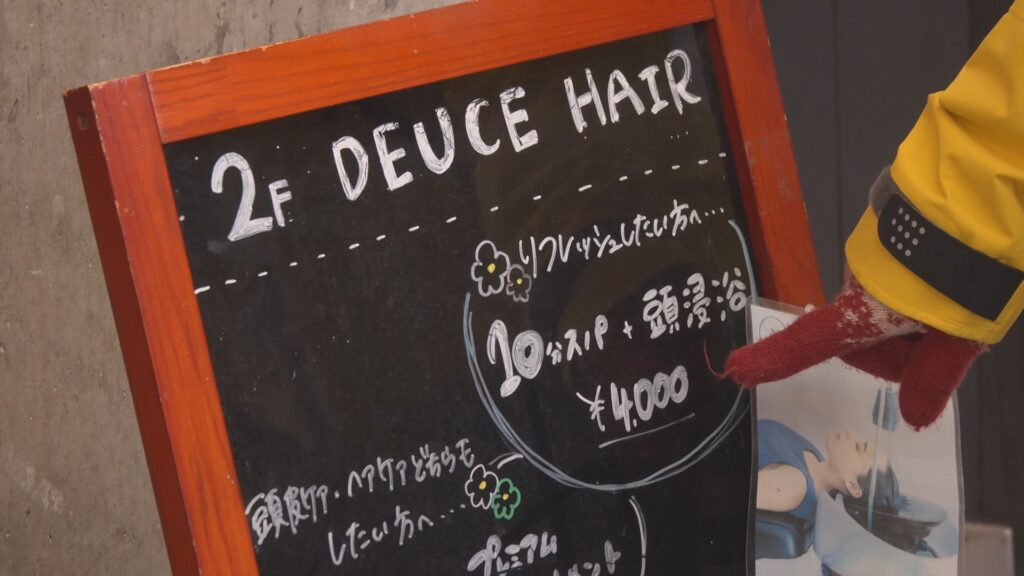 2F DEUCE HAIR
リフレッシュしたい方へ…
10分スパ + 頭浸浴
¥4,000
頭皮ケア・ヘアケアどちらも
したい方へ....
プレミアム